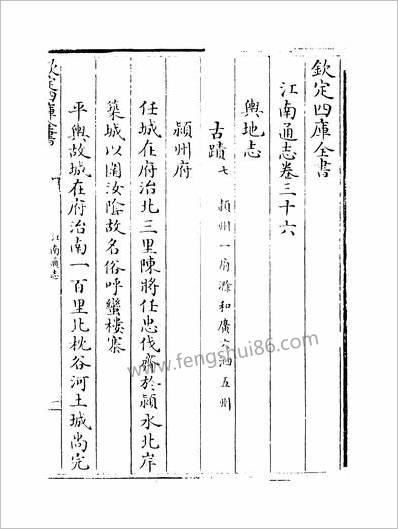 欽定四庫全書
江南通志卷三十六
輿地志
古蹟七 潁州一府滁和廣六泗五州
潁州府
任城在府治北三里陳將任忠伐齊於潁水北岸
築城以圍汝陰故名俗呼蠻樓寨
平輿故城在府治南一百里北枕谷河土城尚完
欽定四庫全書
江南通志
一
www.fengshui86.com